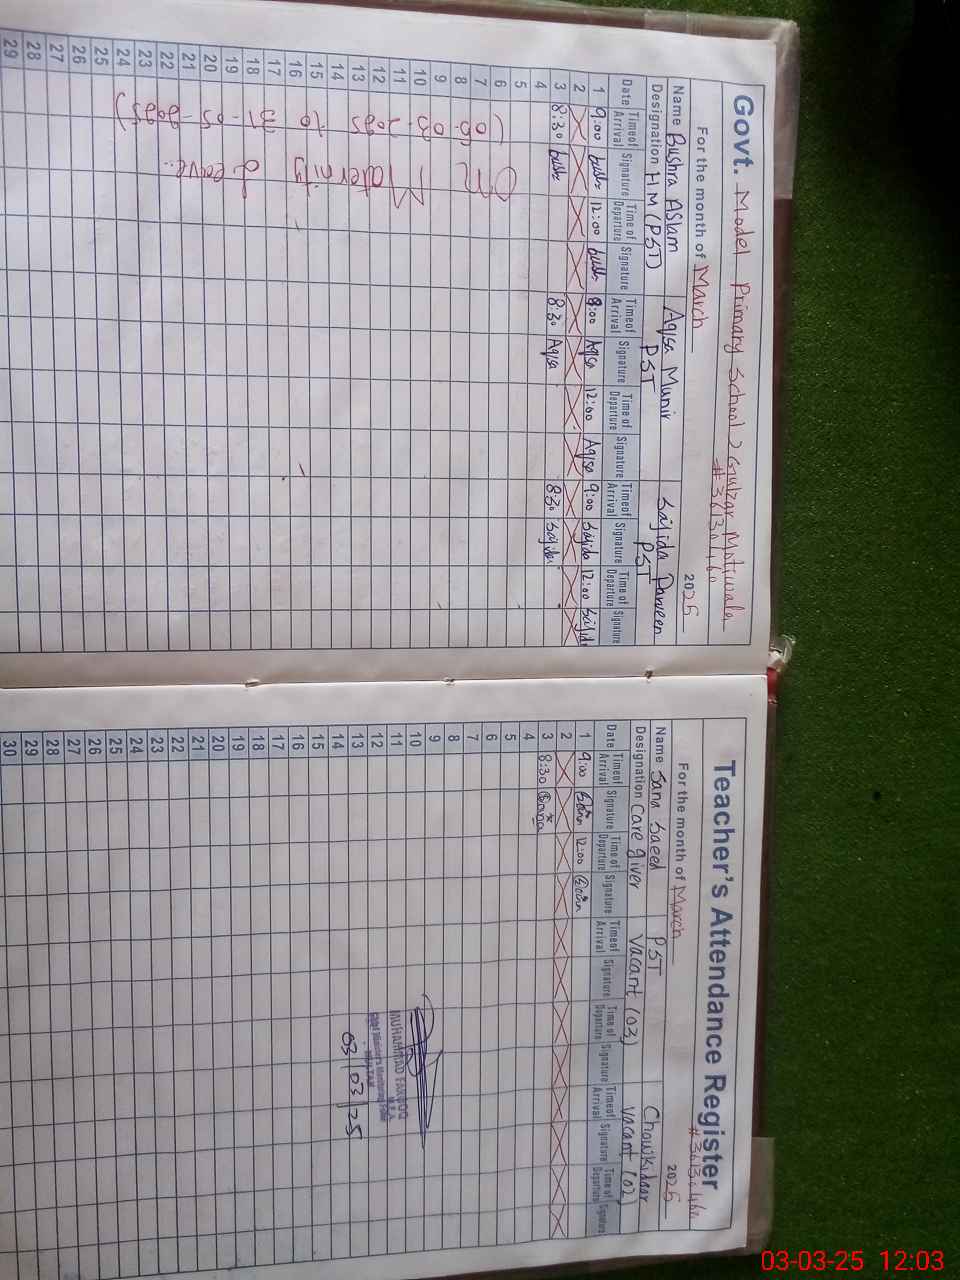 Govt. Model Primary School 2 Gulzar Motiwala
#36130460
For the month of March 2025
Name Bushra Aslam Aqsa Munir Sajida Parveen
Designation HM (PST) PST PST
Date Time of Arrival Signature Time of Departure Signature Time of Arrival Signature Time of Departure Signature Time of Arrival Signature Time of Departure Signature
1 9:00 bush 12:00 bush 9:00 Aqsa 12:00 Aqsa 9:00 Sajida 12:00 Sajida
2
3 8:30 bush 8:30 Aqsa 8:30 Sajida
4
5
6
7
8
9
10
11
12
13
14
15
16
17
18
19
20
21
22
23
24
25
26
27
28
29
On Maternity Leave..
(06-03-2025 to 31-05-2025)
Teacher's Attendance Register
#36130460
For the month of March 2025
Name Sana Saeed PST Chowkidaar
Designation Care giver Vacant (03) Vacant (02)
Date Time of Arrival Signature Time of Departure Signature Time of Arrival Signature Time of Departure Signature Time of Arrival Signature Time of Departure Signature
1 9:00 Sana 12:00 Sana
2
3 8:30 Sana
4
5
6
7
8
9
10
11
12
13
14
15
16
17
18
19
20
21
22
23
24
25
26
27
28
29
30
MUHAMMAD FAROOQ
M.E.A
Chief Minister's Monitoring Force
MULTAN
03/03/25
03-03-25 12:03